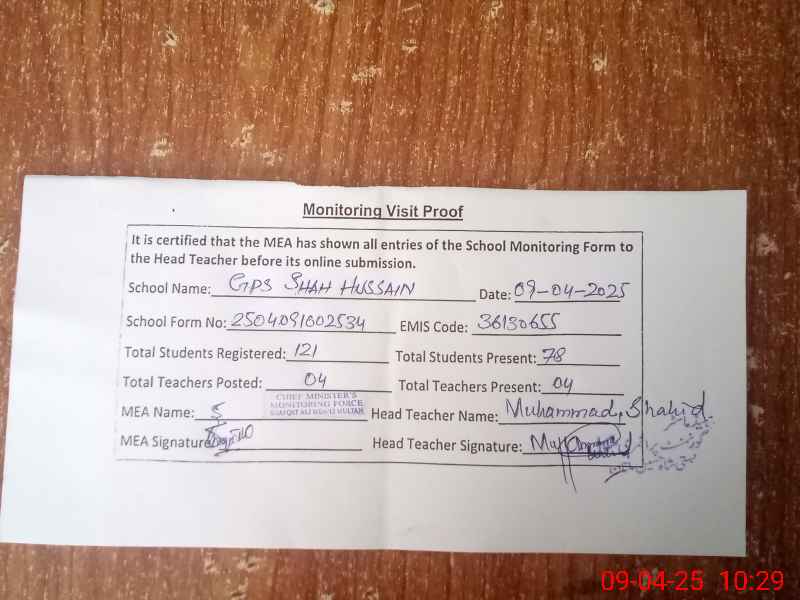 Monitoring Visit Proof
It is certified that the MEA has shown all entries of the School Monitoring Form to
the Head Teacher before its online submission.
School Name: GPS SHAH HUSSAIN Date: 09-04-2025
School Form No: 2504091002534 EMIS Code: 36130655
Total Students Registered: 121 Total Students Present: 78
Total Teachers Posted: 04 Total Teachers Present: 04
CHIEF MINISTER'S
MONITORING FORCE
MEA Name: Head Teacher Name: Muhammad Shahid
MEA Signature Head Teacher Signature:
09-04-25 10:29